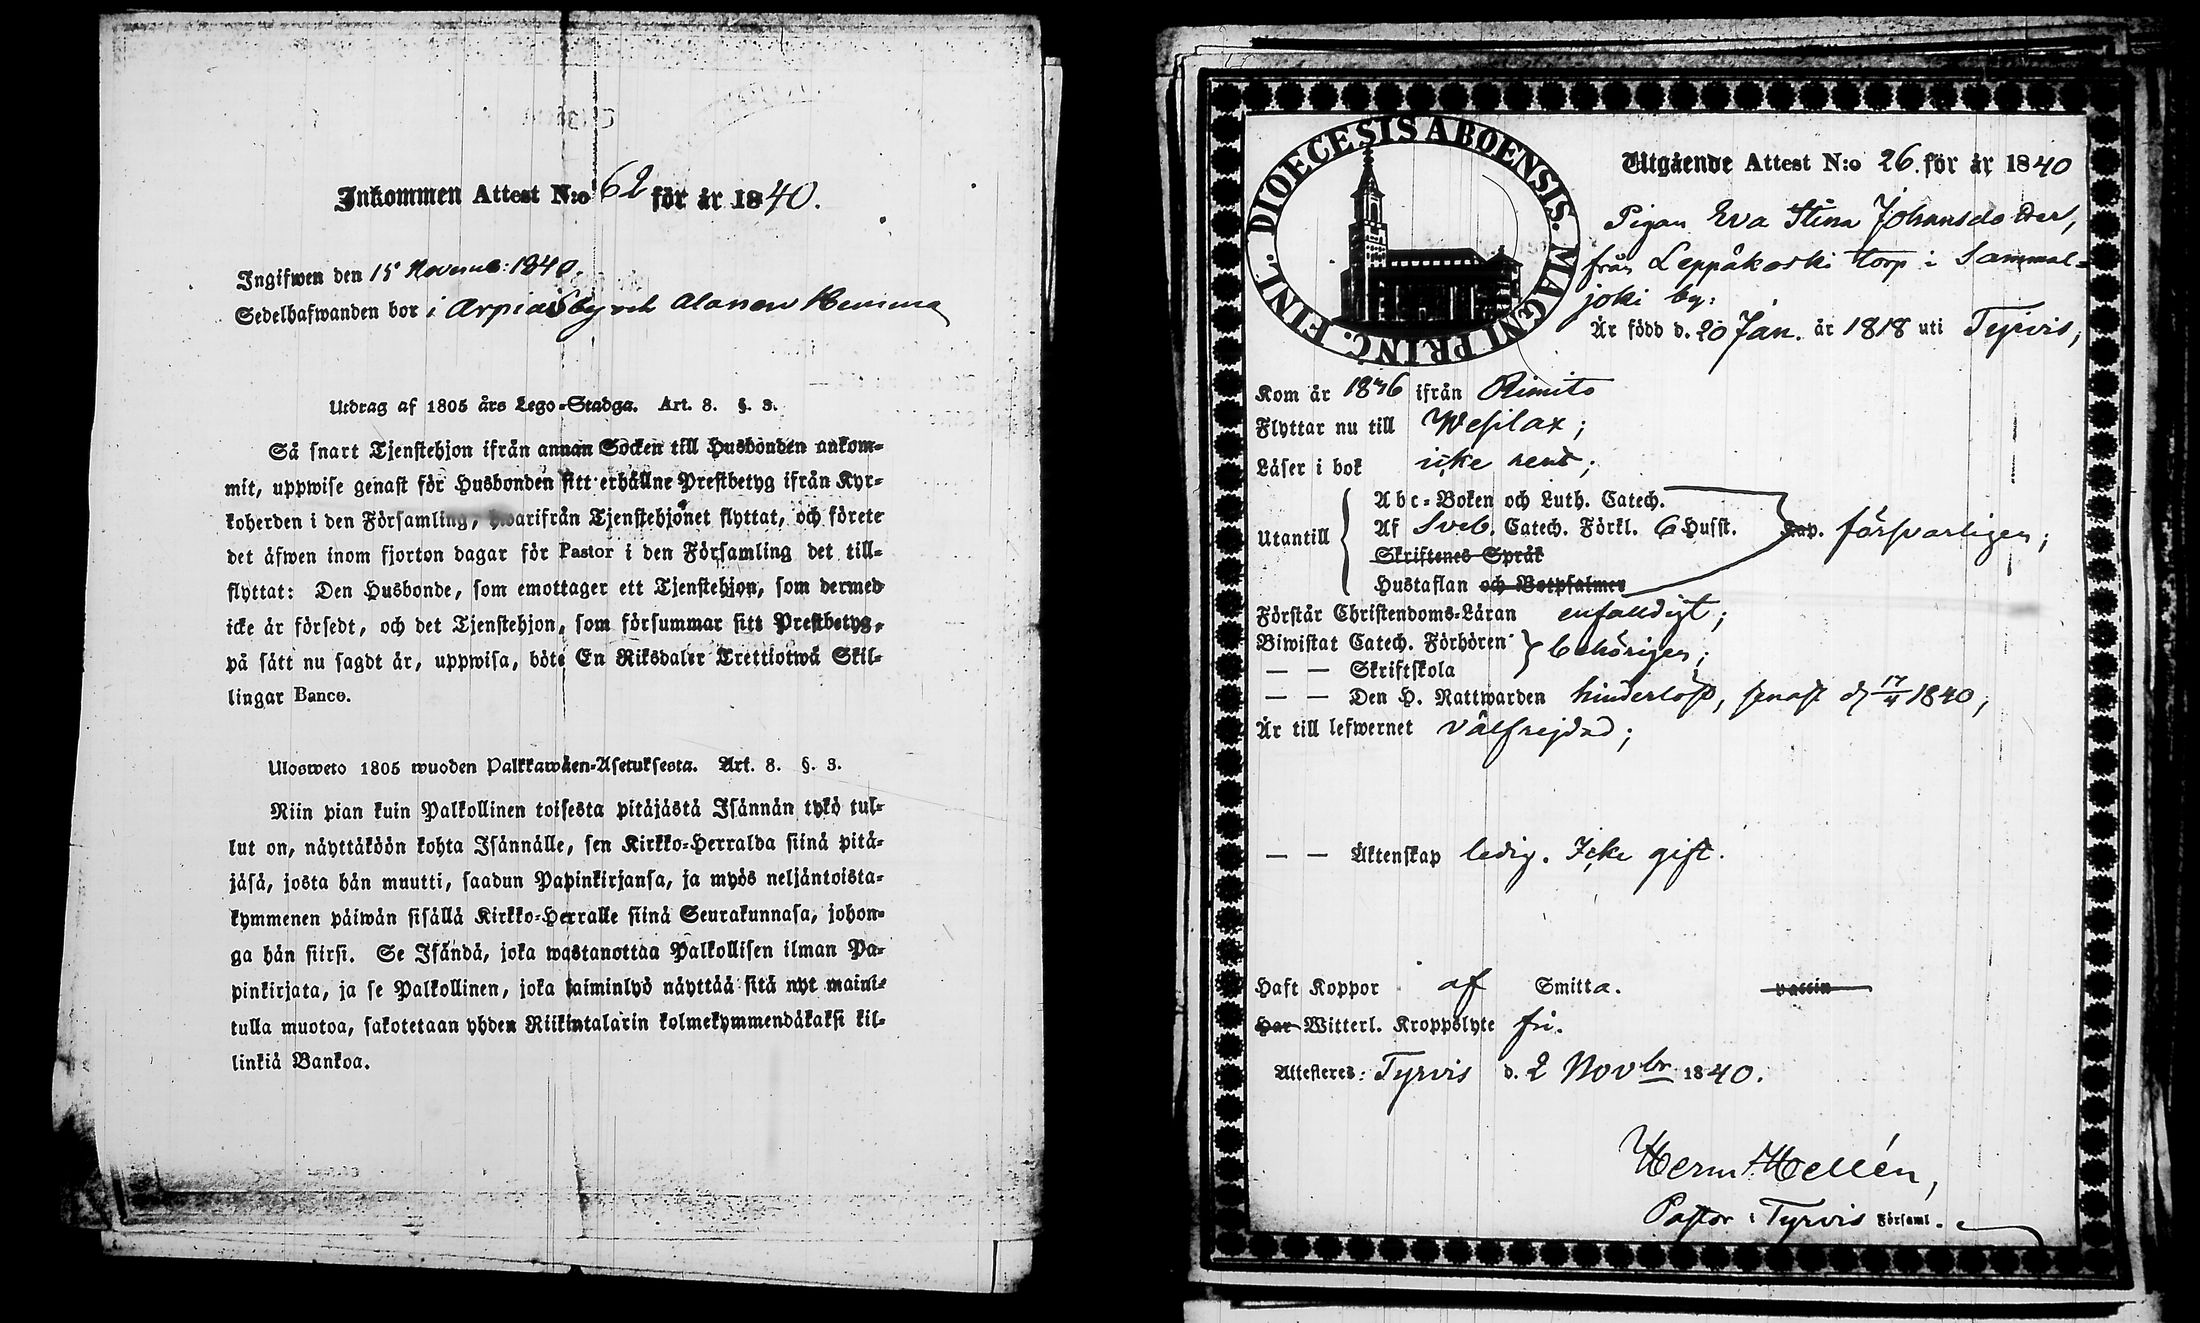 Inkommen Attest N:o 62 för år 1840.
Ingifwen den 15 Novemb: 1840.
Sedelhafwanden bor i Arpiais by och Alanen Hemma
Utdrag af 1805 års Lego-Stadga. Art. 8. §. 3.
Så snart Tjenstehjon ifrån annan Socken till Husbonden ankom-
mit, uppwise genast för Husbonden sitt erhållne Prestbetyg ifrån Kyr-
koherden i den Församling, hwarifrån Tjenstehjonet flyttat, och förete
det äfwen inom fjorton dagar för Pastor i den Församling det till-
flyttat: Den Husbonde, som emottager ett Tjenstehjon, som dermed
icke är försedt, och det Tjenstehjon, som försummar sitt Prestbetyg,
på sätt nu sagdt är, uppwisa, böte En Riksdaler Trettiotwå Skil-
lingar Banco.
Ulosweto 1805 wuoden Palkkawäen-Asetuksesta. Art. 8. §. 3.
Niin pian kuin Palkollinen toisesta pitäjästä Isännän tykö tul-
lut on, näyttäköön kohta Isännälle, sen Kirkko-Herralda siinä pitä-
jäsä, josta hän muutti, saadun Papinkirjansa, ja myös neljäntoista-
kymmenen päiwän sisällä Kirkko-Herralle siinä Seurakunnasa, johon-
ga hän siirsi. Se Isändä, joka wastanottaa Palkollisen ilman Pa-
pinkirjata, ja se Palkollinen, joka laiminlyö näyttää sitä nyt mainit-
tulla muotoa, sakotetaan yhden Riikintalarin kolmekymmendäkaksi kil-
linkiä Bankoa.
DIOECESIS ABOENSIS. MAGNI PRINC. FINL.
Utgående Attest N:o 26. för år 1840
Pigan Eva Stina Johansdotter,
från Leppäkoski torp i Sammal-
joki by:
Är född d. 20 Jan. år 1818 uti Tyrvis,
Kom år 1836 ifrån Rimito
Flyttar nu till Wesilax;
Läser i bok icke rent;
Utantill
Abc-Boken och Luth. Catech.
Af Sveb. Catech. Förkl. 6 Hufst. Kap. försvarligen;
Skriftenes Språk
Hustaflan och Botpsalmer
Förstår Christendoms-Läran enfaldigt;
Biwistat Catech. Förhören behörigen;
— — Skriftskola
— — Den H. Nattwarden hinderlöst, senast d. 17/4 1840,
Är till lefwernet välfrejdad;
— — Äktenskap ledig. Icke gift.
Haft Koppor af Smitta. vaccin
Har Witterl. Kroppslyte fri.
Attesteres: Tyrvis d. 2 Novbr 1840.
Herm. Hellén,
Pastor i Tyrvis Församl.